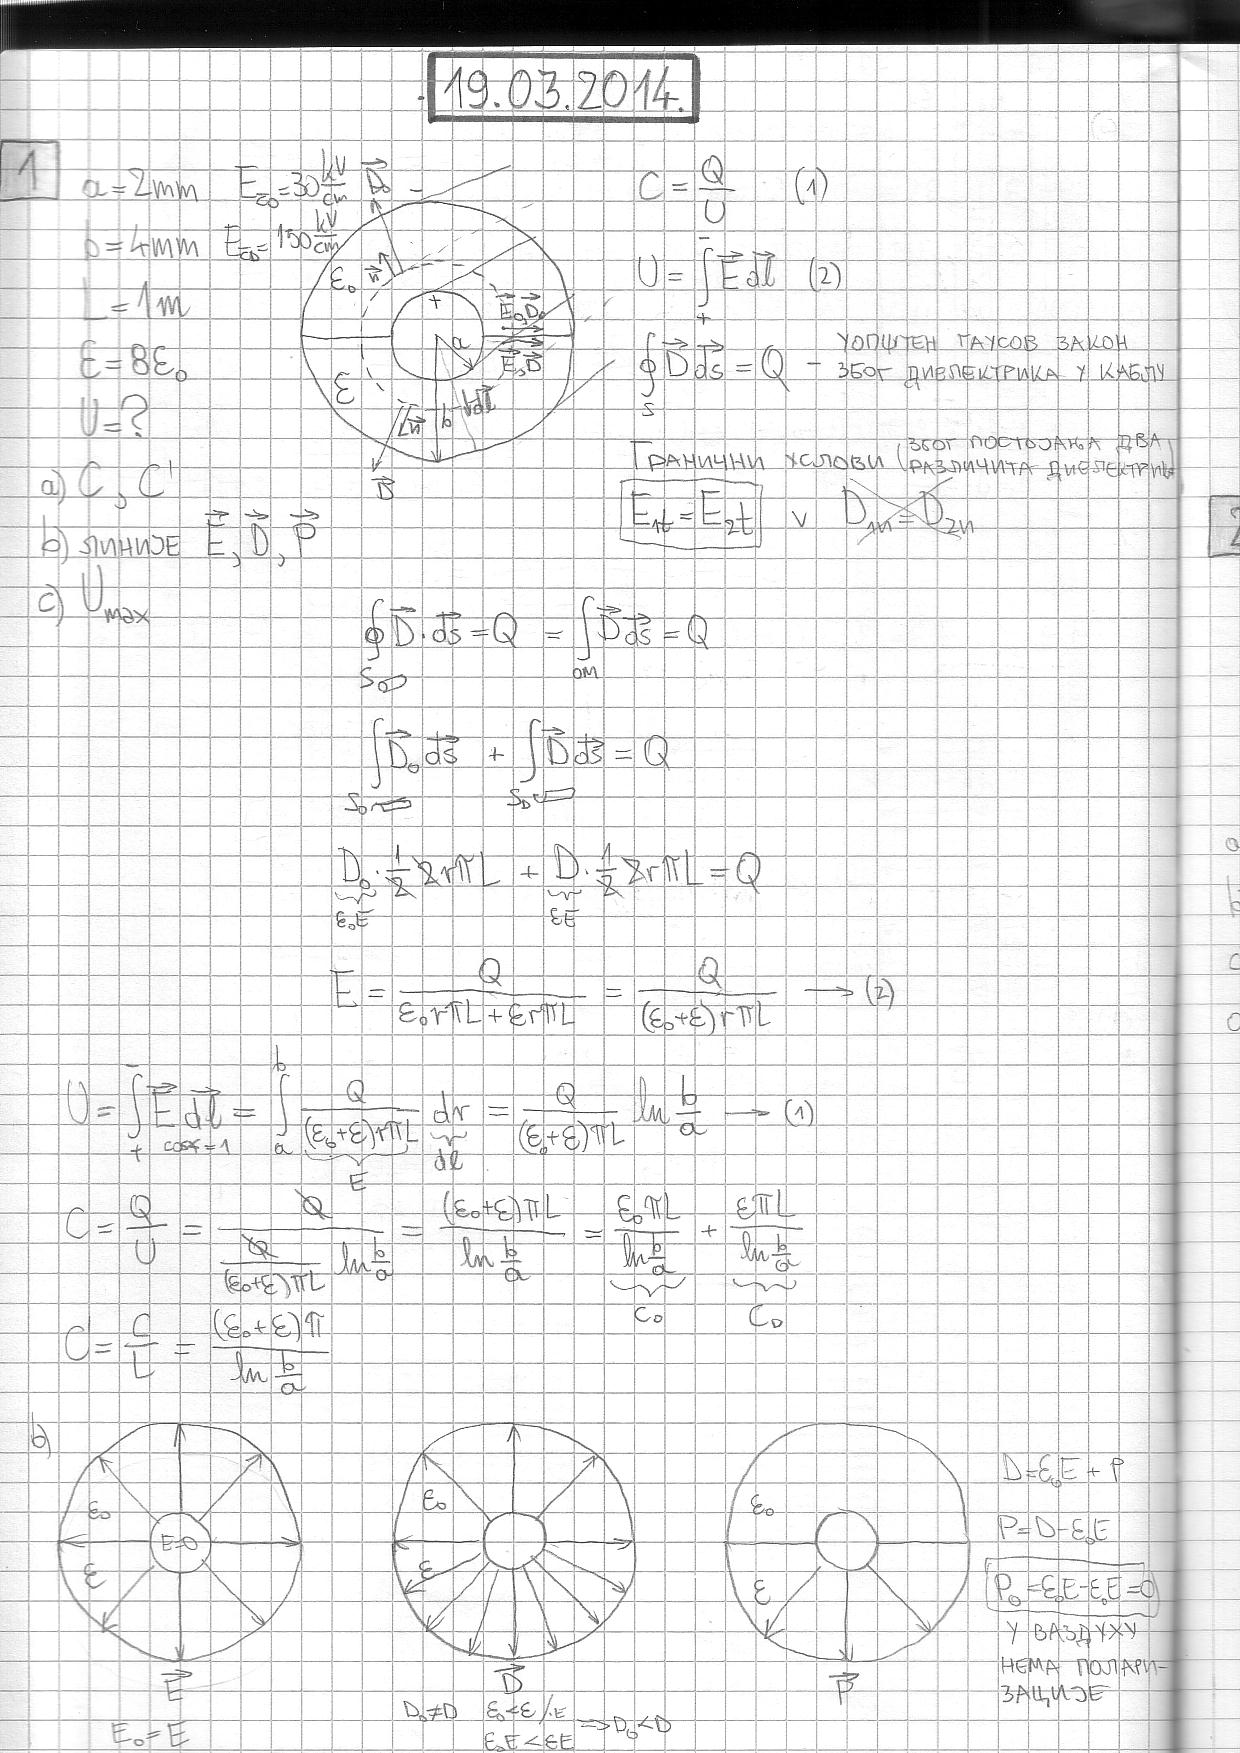 19.03.2014.
1
a=2mm E_ČO=30 kV/cm
b=4mm E_ČD=150 kV/cm
L=1m
ε=8ε₀
U=?
a) C, C'
b) линије E⃗, D⃗, P⃗
c) U_max
D⃗₀
n⃗
ε₀
+
a
E⃗₀,D⃗₀
E⃗,D⃗
ε
n⃗
b
dl⃗
D⃗
C = Q/U (1)
U = ∫₊⁻ E⃗ dl⃗ (2)
∮_S D⃗ ds⃗ = Q - УОПШТЕН ГАУСОВ ЗАКОН
ЗБОГ ДИЕЛЕКТРИКА У КАБЛУ
ГРАНИЧНИ УСЛОВИ (ЗБОГ ПОСТОЈАЊА ДВА
РАЗЛИЧИТА ДИЕЛЕКТРИК
E₁t = E₂t v D₁n = D₂n
2
∮_S₀ D⃗·ds⃗ = Q = ∫_ОМ D⃗ ds⃗ = Q
∫_S₀ D⃗₀ ds⃗ + ∫_S_D D⃗ ds⃗ = Q
D₀·1/2 2rπL + D·1/2 2rπL = Q
ε₀E εE
E = Q/(ε₀rπL+εrπL) = Q/((ε₀+ε)rπL) → (2)
U = ∫₊⁻ E⃗ dl⃗ = ∫ₐᵇ Q/((ε₀+ε)rπL) dr = Q/((ε₀+ε)πL) ln b/a → (1)
cosα=1 E dl
C = Q/U = Q/(Q/((ε₀+ε)πL) ln b/a) = (ε₀+ε)πL/(ln b/a) = ε₀πL/(ln b/a) + επL/(ln b/a)
C₀ C_D
C' = C/L = (ε₀+ε)π/(ln b/a)
b)
ε₀
E=0
ε
E⃗
E₀=E
ε₀
ε
D⃗
D₀≠D ε₀<ε /·E
ε₀E<εE ⇒ D₀<D
ε₀
ε
P⃗
D=ε₀E+P
P=D-ε₀E
P₀=ε₀E-ε₀E=0
У ВАЗДУХУ
НЕМА ПОЛАРИ-
ЗАЦИЈЕ